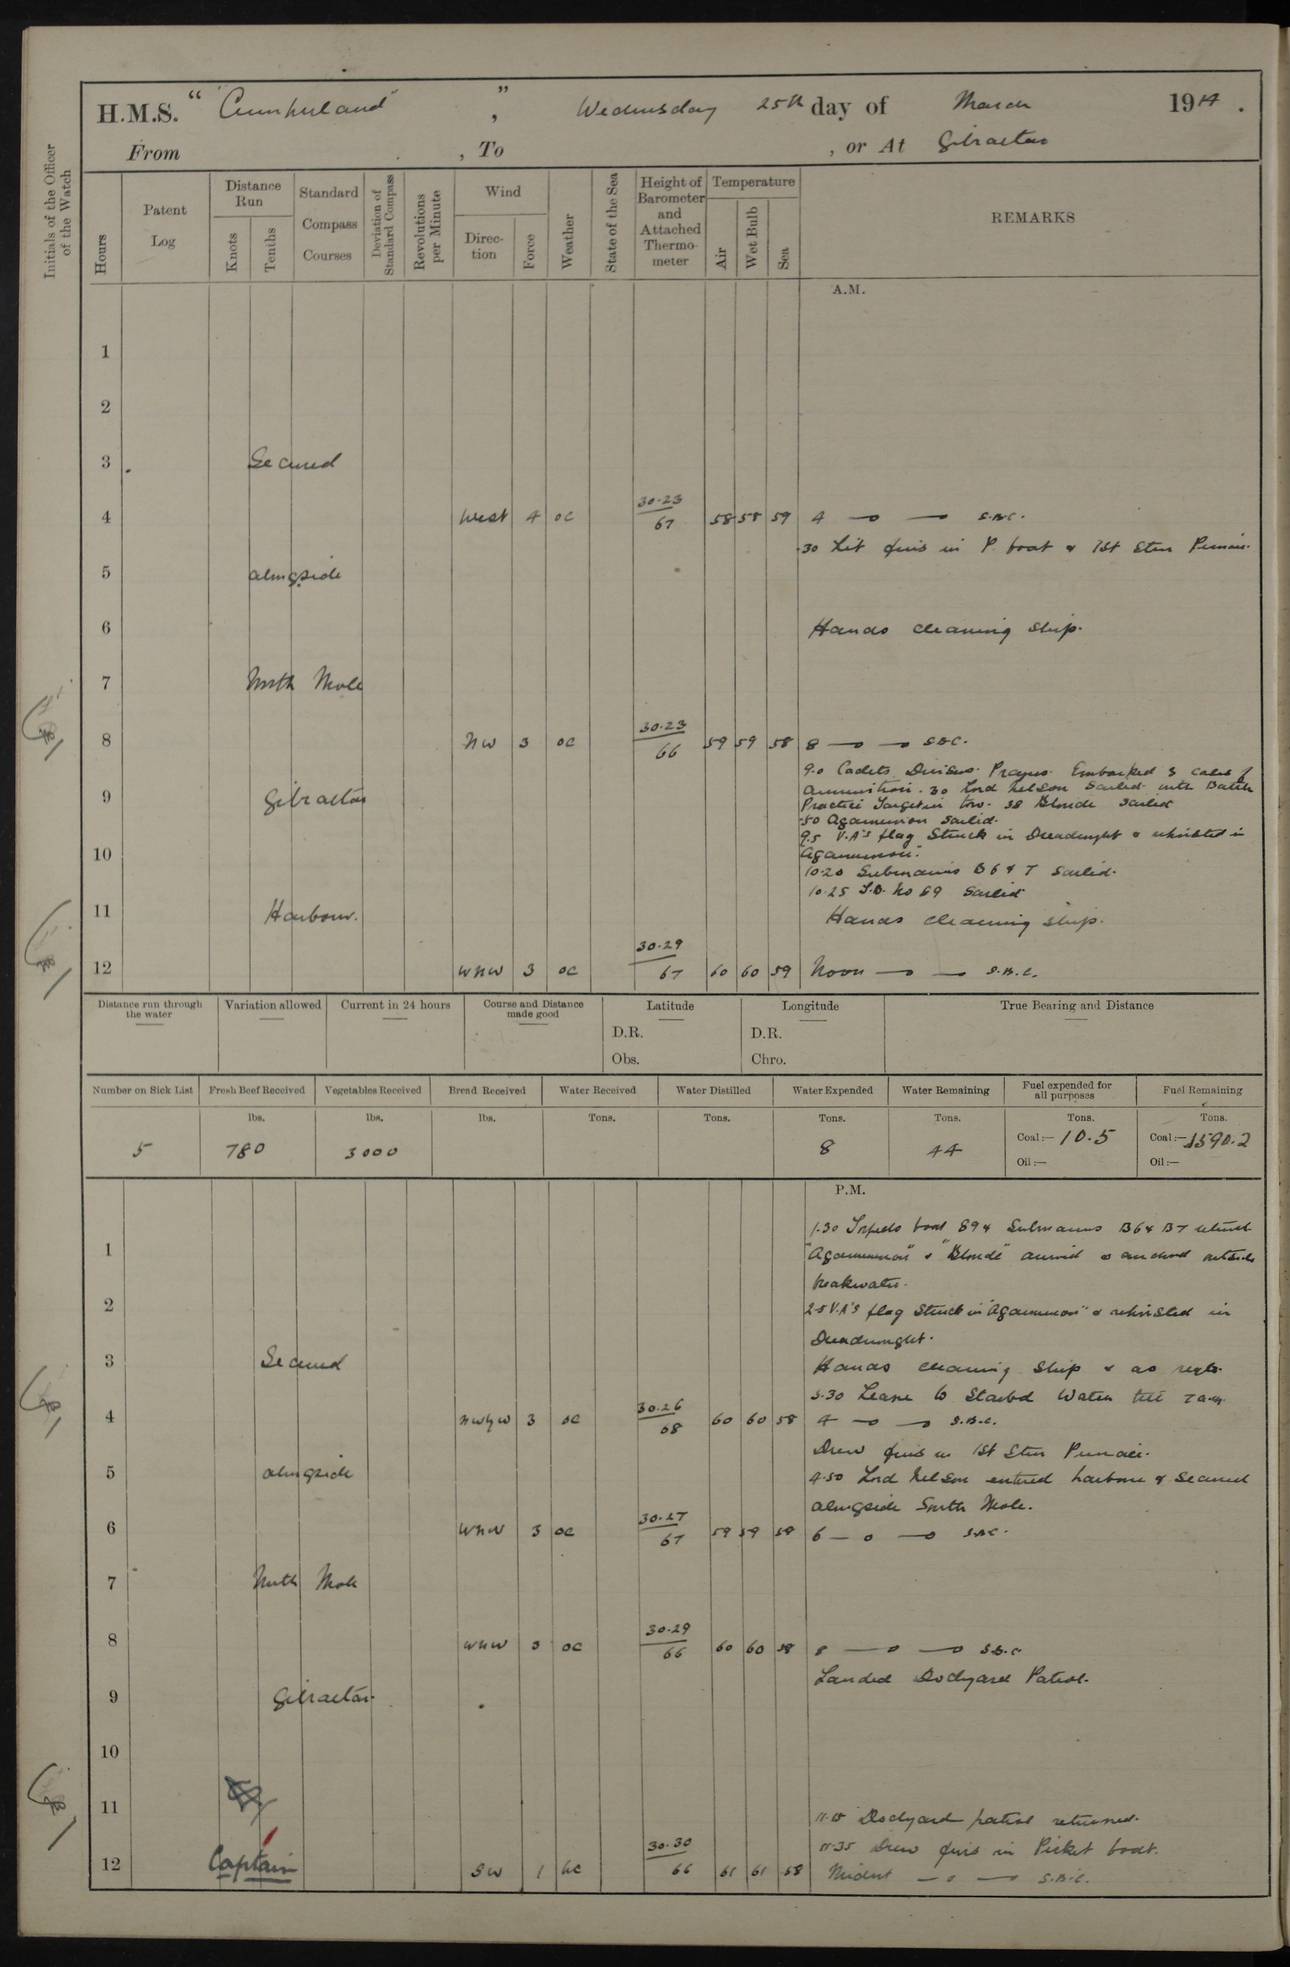 H.M.S. "Cumberland", Wednesday 25th day of March 1914.
From , To , or At Gibraltar
Initials of the Officer of the Watch
Hours
Patent Log
Distance Run
Knots
Tenths
Standard Compass Courses
Deviation of Standard Compass
Revolutions per Minute
Wind
Direction
Force
Weather
State of the Sea
Height of Barometer and Attached Thermometer
Temperature
Air
Wet Bulb
Sea
REMARKS
A.M.
1
2
3 Secured
4 West 4 oc 30.23 67 58 58 59 4 S.B.C.
.30 Lit fires in P. boat & 1st Stm Pinnace.
5 alongside
6 Hands cleaning ship.
7 North Mole
8 NW 3 oc 30.23 66 59 59 58 8 S.B.C.
9.0 Cadets Divisions. Prayers. Embarked 3 cases of
9 Gibraltar ammunition. 30 Lord Nelson Sailed with Battle
Practice Target in tow. 38 Blonde sailed
.50 Agamemnon sailed.
9.5 V.A's flag Struck in Dreadnought & rehoisted in
10 Agamemnon.
10.20 Submarines B6 & 7 sailed.
10.25 T.B. No 89 sailed
11 Harbour. Hands cleaning ship.
12 WNW 3 oc 30.29 67 60 60 59 Noon S.B.C.
Distance run through the water
Variation allowed
Current in 24 hours
Course and Distance made good
Latitude
D.R.
Obs.
Longitude
D.R.
Chro.
True Bearing and Distance
Number on Sick List
Fresh Beef Received
Vegetables Received
Bread Received
Water Received
Water Distilled
Water Expended
Water Remaining
Fuel expended for all purposes
Fuel Remaining
lbs. lbs. lbs. Tons. Tons. Tons. Tons. Tons. Tons.
5 780 3000 8 44 Coal:— 10.5 Coal:— 1590.2
Oil:— Oil:—
P.M.
1.30 Torpedo boat 89 & Submarines B6 & B7 returned
1 "Agamemnon" & "Blonde" arrived & anchored outside
breakwater.
2 2.5 V.A's flag Struck in "Agamemnon" & rehoisted in
Dreadnought.
3 Secured Hands cleaning Ship & as reqte.
3.30 Leave to Starbd Watch till 7 a.m.
4 NWbyW 3 oc 30.26 68 60 60 58 4 S.B.C.
Drew fires in 1st Stm Pinnace.
5 alongside 4.50 Lord Nelson entered harbour & Secured
alongside South Mole.
6 WNW 3 oc 30.27 67 59 59 58 6 S.B.C.
7 North Mole
8 WNW 3 oc 30.29 66 60 60 58 8 S.B.C
Landed Dockyard Patrol.
9 Gibraltar.
10
11 11.15 Dockyard patrol returned.
11.35 Drew fires in Picket boat.
12 Captain SW 1 bc 30.30 66 61 61 58 Midnt S.B.C.